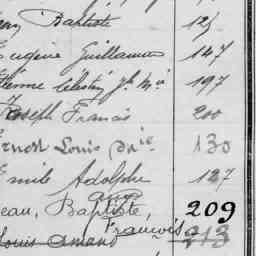 Baptiste 125
Eugène Guillaume 147
Etienne Célestin Jh M 197
Joseph Francis 200
Ernest Louis 130
Emile Adolphe 187
Jean, Baptiste, 209
François
Louis Amand 213